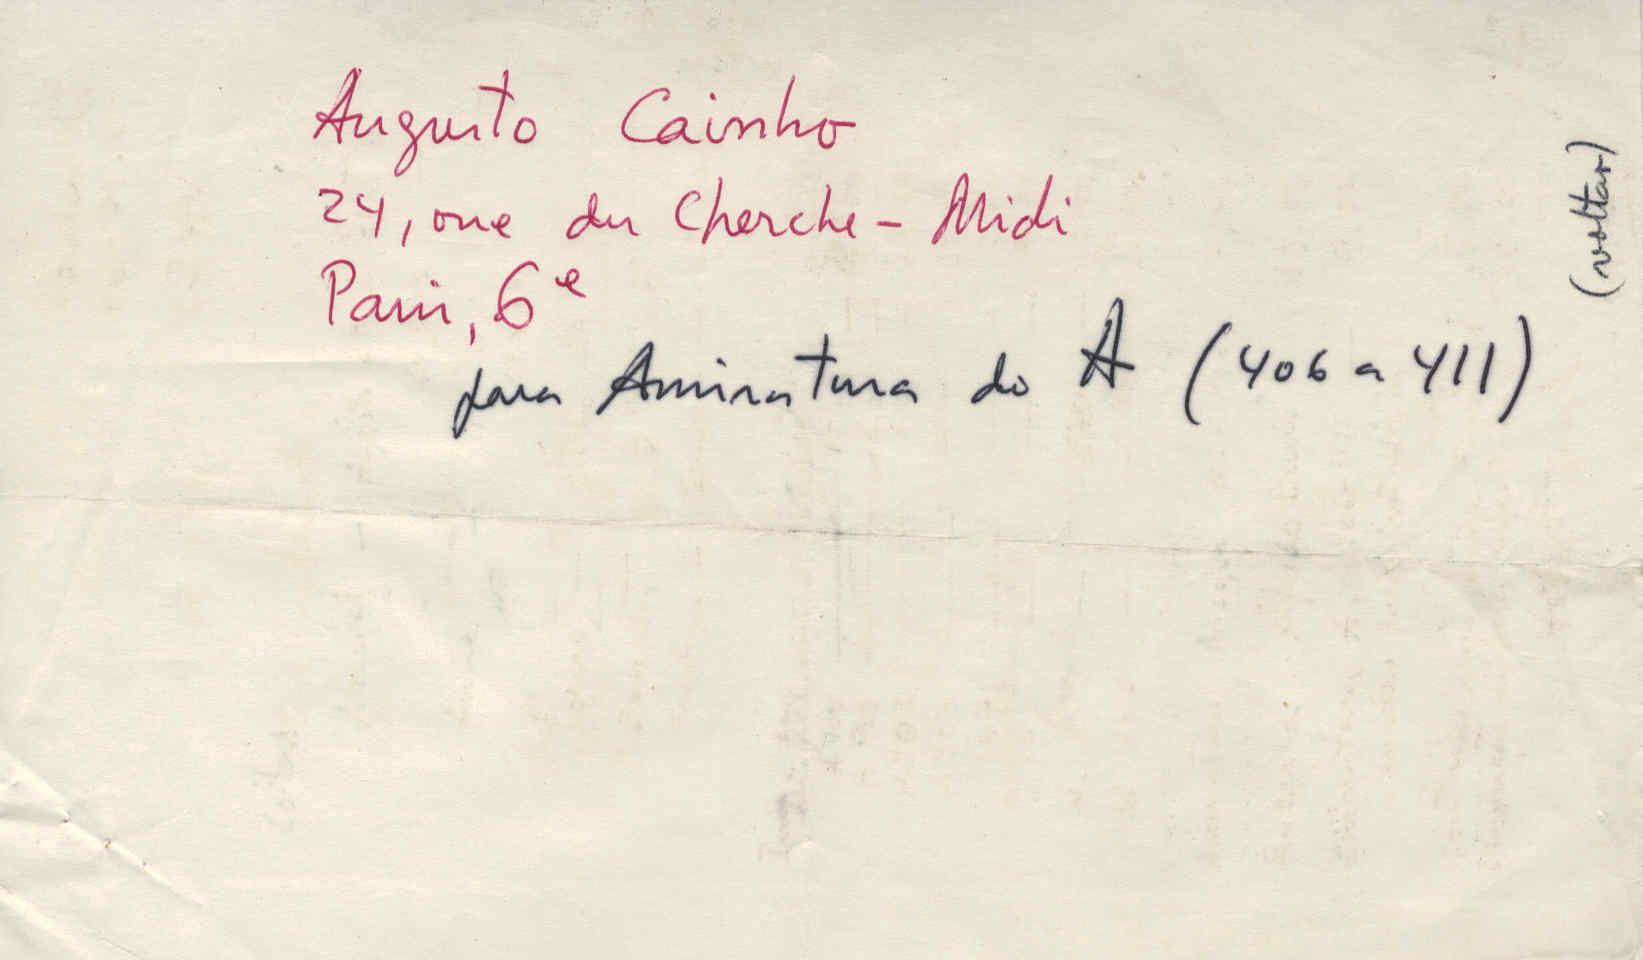 Augusto Cainho
24, rue du Cherche-Midi
Paris, 6e
para Assinatura do A (406 a 411)
(voltar)